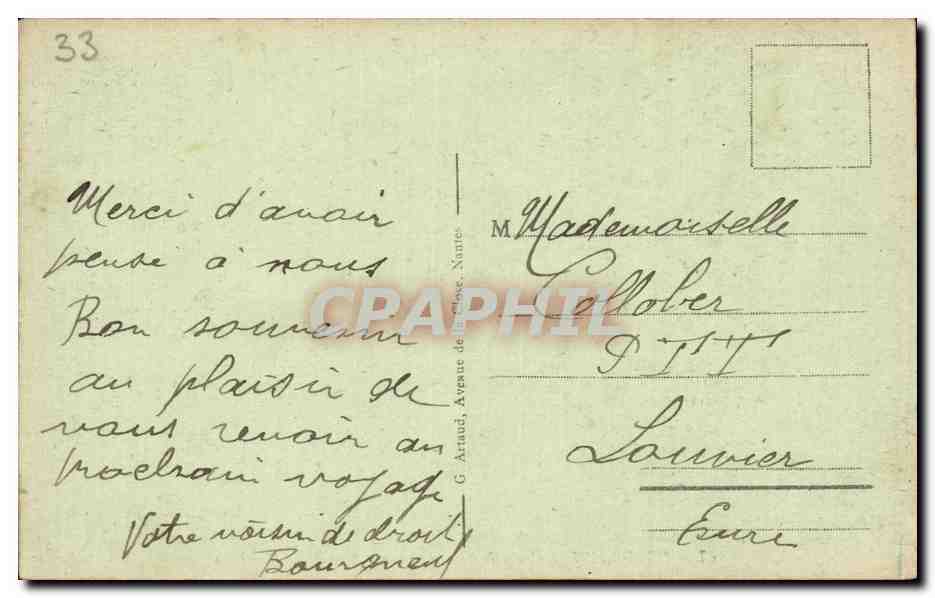 33
Merci d'avoir
pensé à nous
Bon souvenir
au plaisir de
vous revoir au
prochain voyage
Votre voisin de droit
G. Artaud, Avenue de la Close, Nantes
M Mademoiselle
Collober
P T T
Louvier
Eure
CPARPHIL